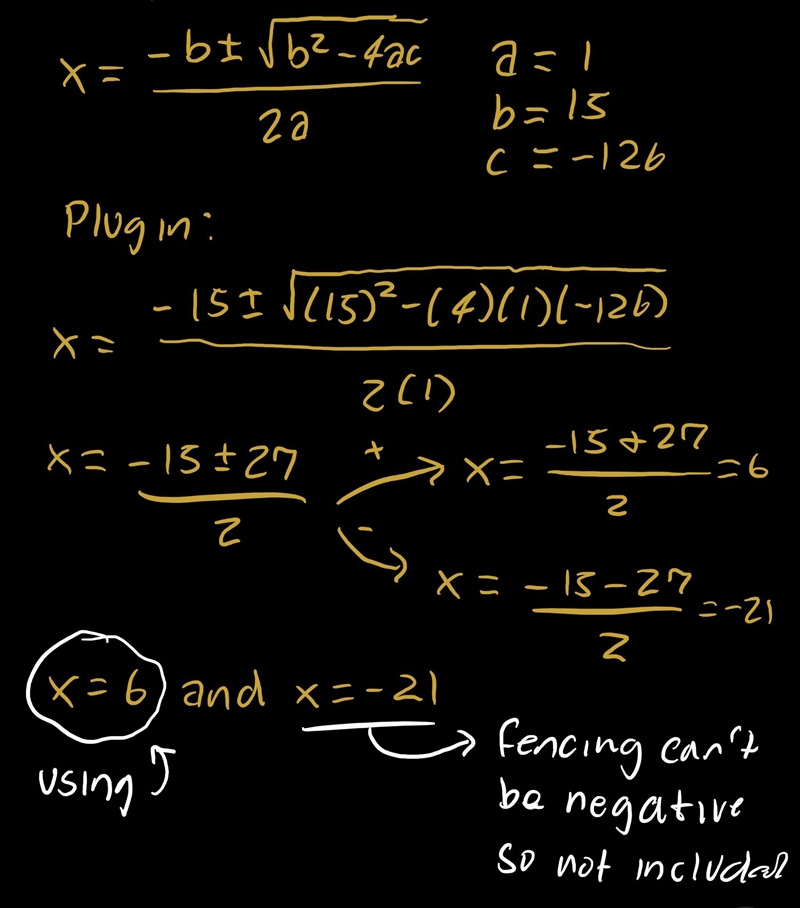 x = (-b ± √(b² - 4ac)) / 2a
a = 1
b = 15
c = -126
Plug in:
x = (-15 ± √((15)² - (4)(1)(-126))) / 2(1)
x = (-15 ± 27) / 2
+ → x = (-15 + 27) / 2 = 6
- → x = (-15 - 27) / 2 = -21
x = 6 and x = -21
using
fencing can't
be negative
so not included